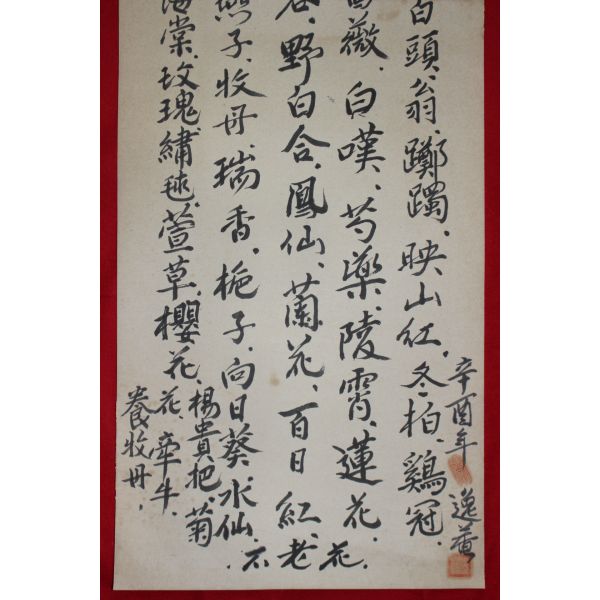 辛酉年 逸菴
白頭、翁、躑躅、映山紅、冬柏、鷄冠、
薇、白嘆、芍藥、陵霄、蓮花、
野白合、鳳仙、蘭花、百日紅、
子、牧丹、瑞香、梔子、向日葵、水仙、
不老花、
海棠、玫瑰、繡毬、萱草、櫻花、
楊貴把、菊
花、牽牛、
養牧丹、